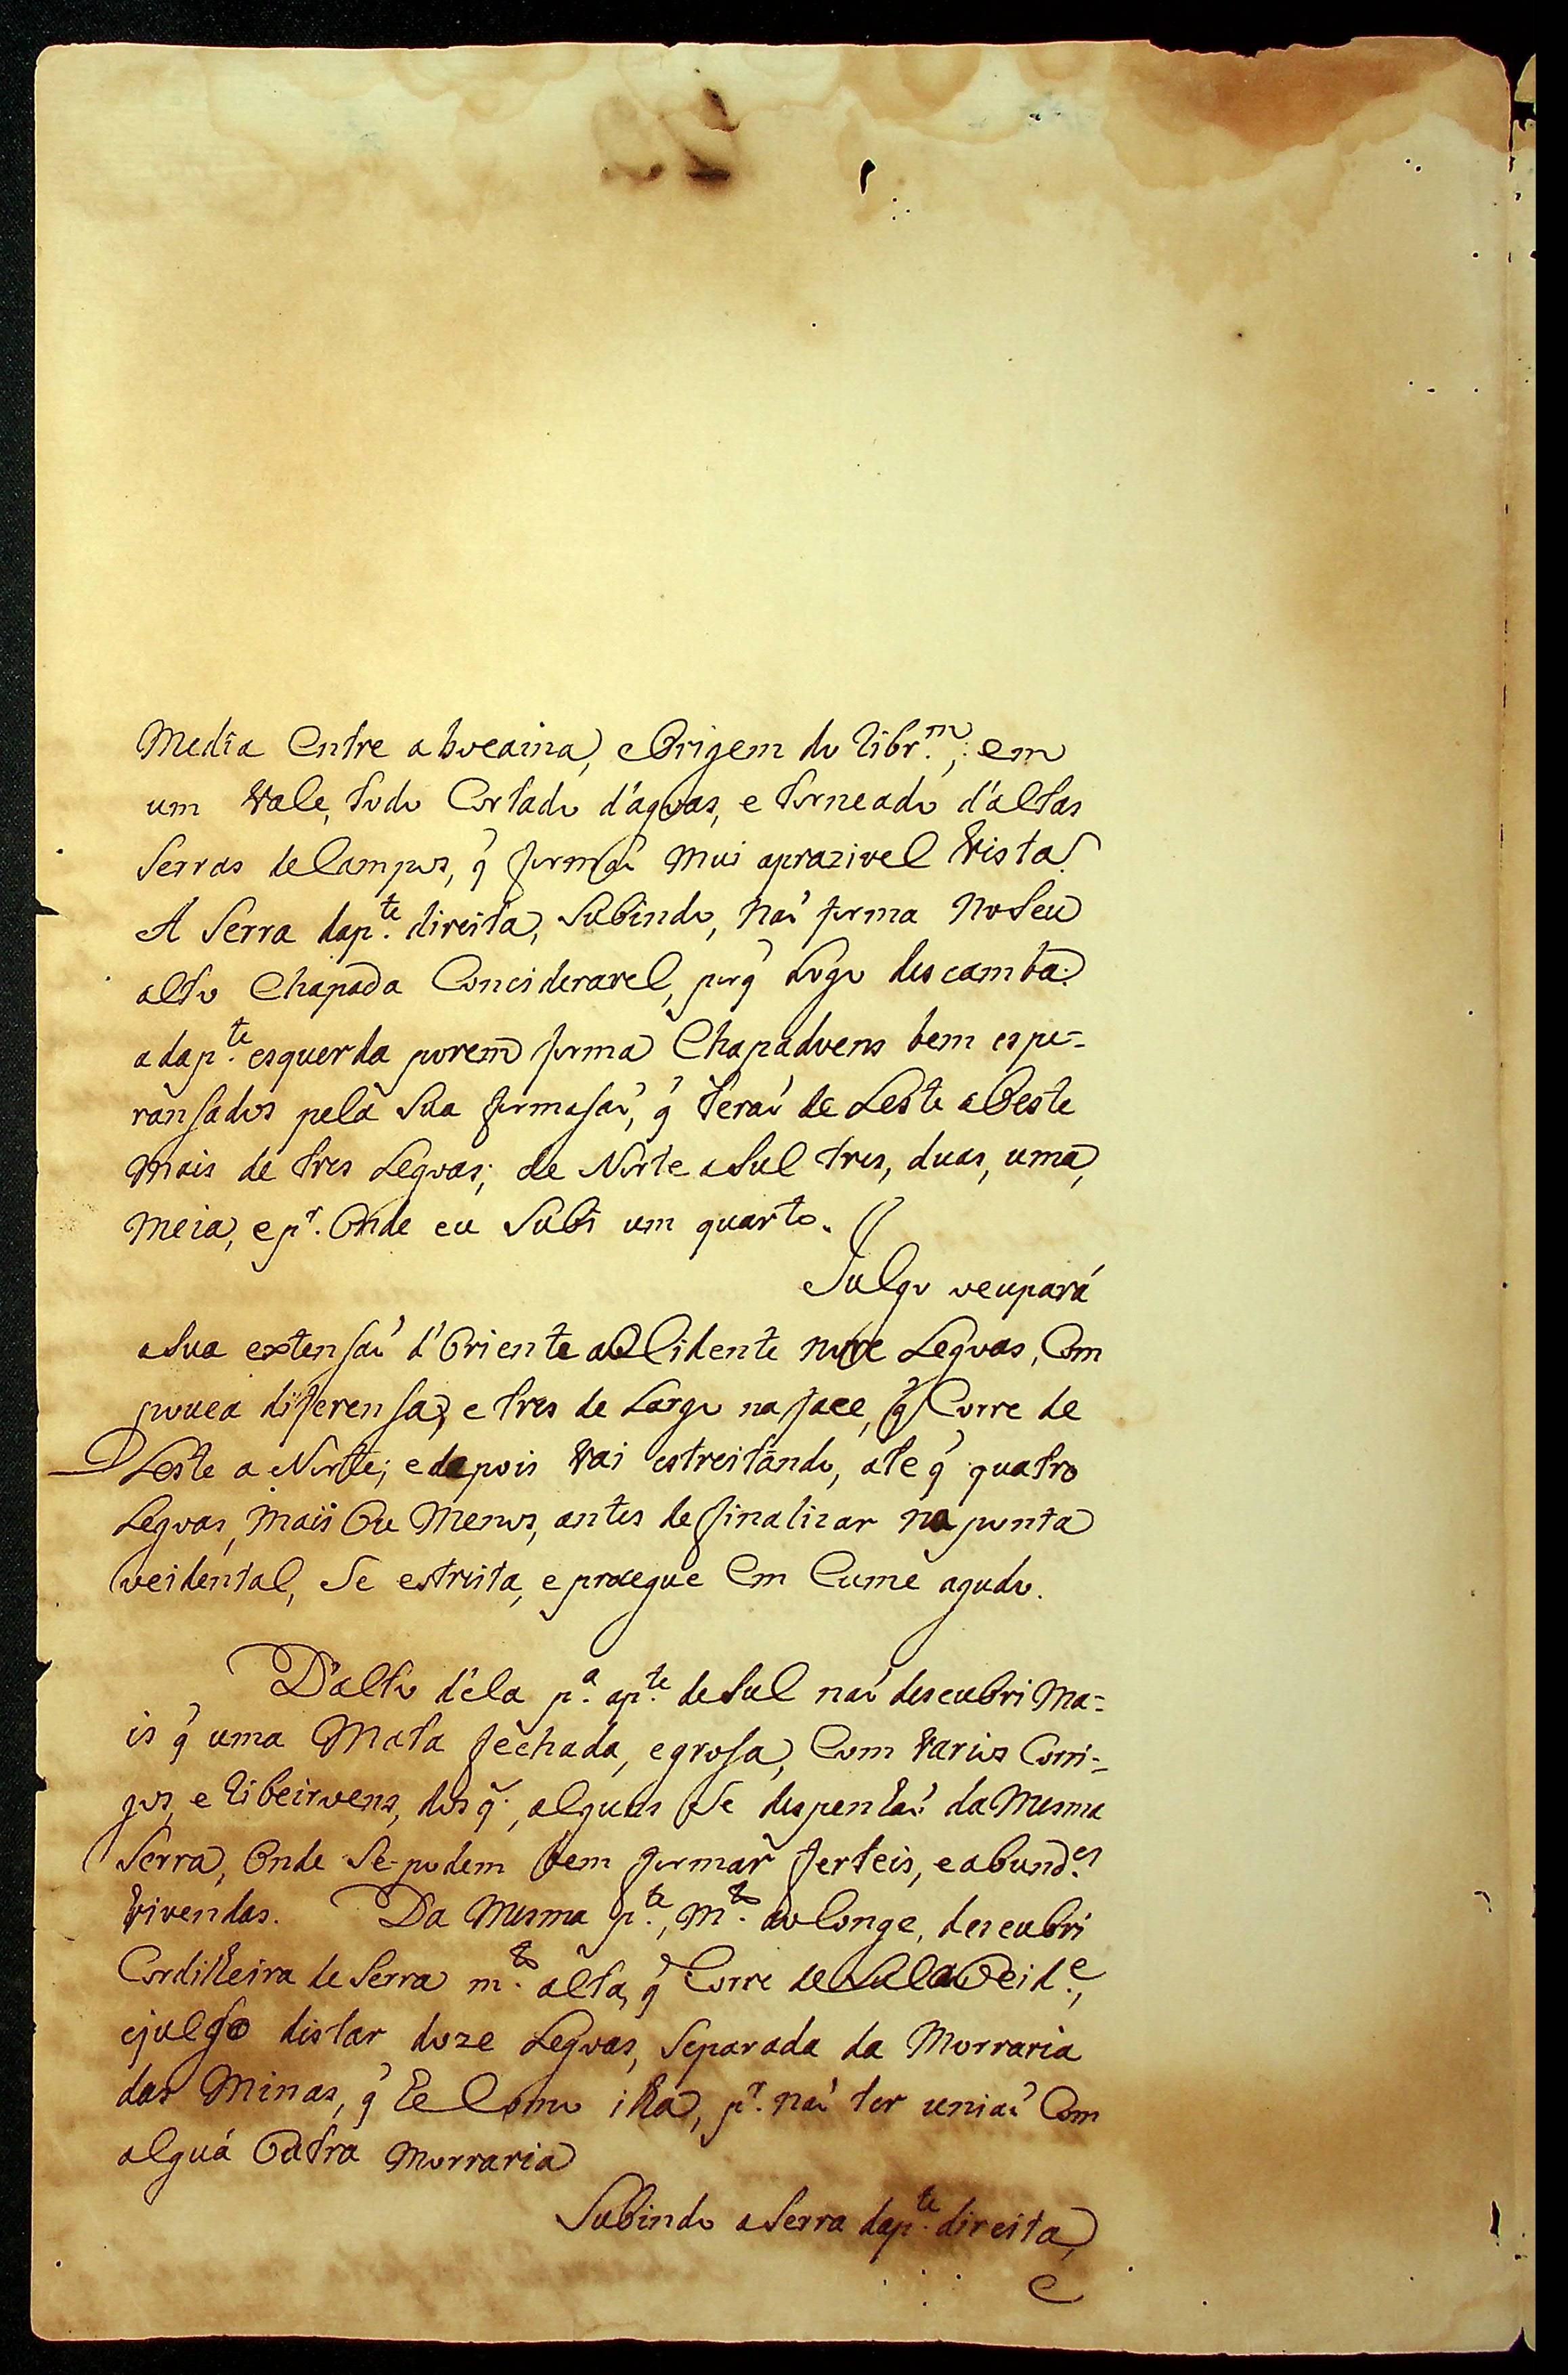 Media entre abocaina, eOrigem do Ribr.m; em
um Vale, todo Cortado d'agoas, e torneado d'altas
Serras deCampos, q̃ formaõ mui aprazivel Vista.
A Serra dap.te direita, Subindo, naõ forma noSeu
alto Chapada Concideravel, porq̃ Logo descamba:
adap.te esquerda porem forma Chapadoens bem espe=
ransados pela Sua formasaõ, q̃ teraõ de Leste aOeste
mais de tres Legoas; de Norte aSul tres, duas, uma,
meia, e p.r Onde eu Subi um quarto. //
Julgo ocupará
aSua extensaõ d'Oriente aOcidente nove Legoas, Com
pouca diferensa; e tres de Largo na face, q̃ Corre de
Leste a Norte; edepois Vai estreitando, ate q̃ quatro
Legoas, mais Ou Menos, antes definalizar na ponta
ocidental, Se estreita, eprocegue Em Cume agudo.
D'alto d'ela p.a ap.te deSul naõ descubri Ma=
is q̃ uma Mata fechada, egrosa, Com Varios Corri=
gos, e Ribeiroens, dos q̃, alguns Se despenhaõ da Mesma
Serra, Onde Se podem bem formar ferteis, eabund.es
Vivendas. Da Mesma p.te, m.to aolonge, descubri
Cordilheira de Serra m.to alta, q̃ Corre deSulaOcid.e,
ejulgo distar doze Legoas, Separada da Morraria
das Minas, q̃ he Como ilha, p.r naõ ter uniaõ Com
alguã Outra Morraria
Subindo aSerra dap.te direita,
e